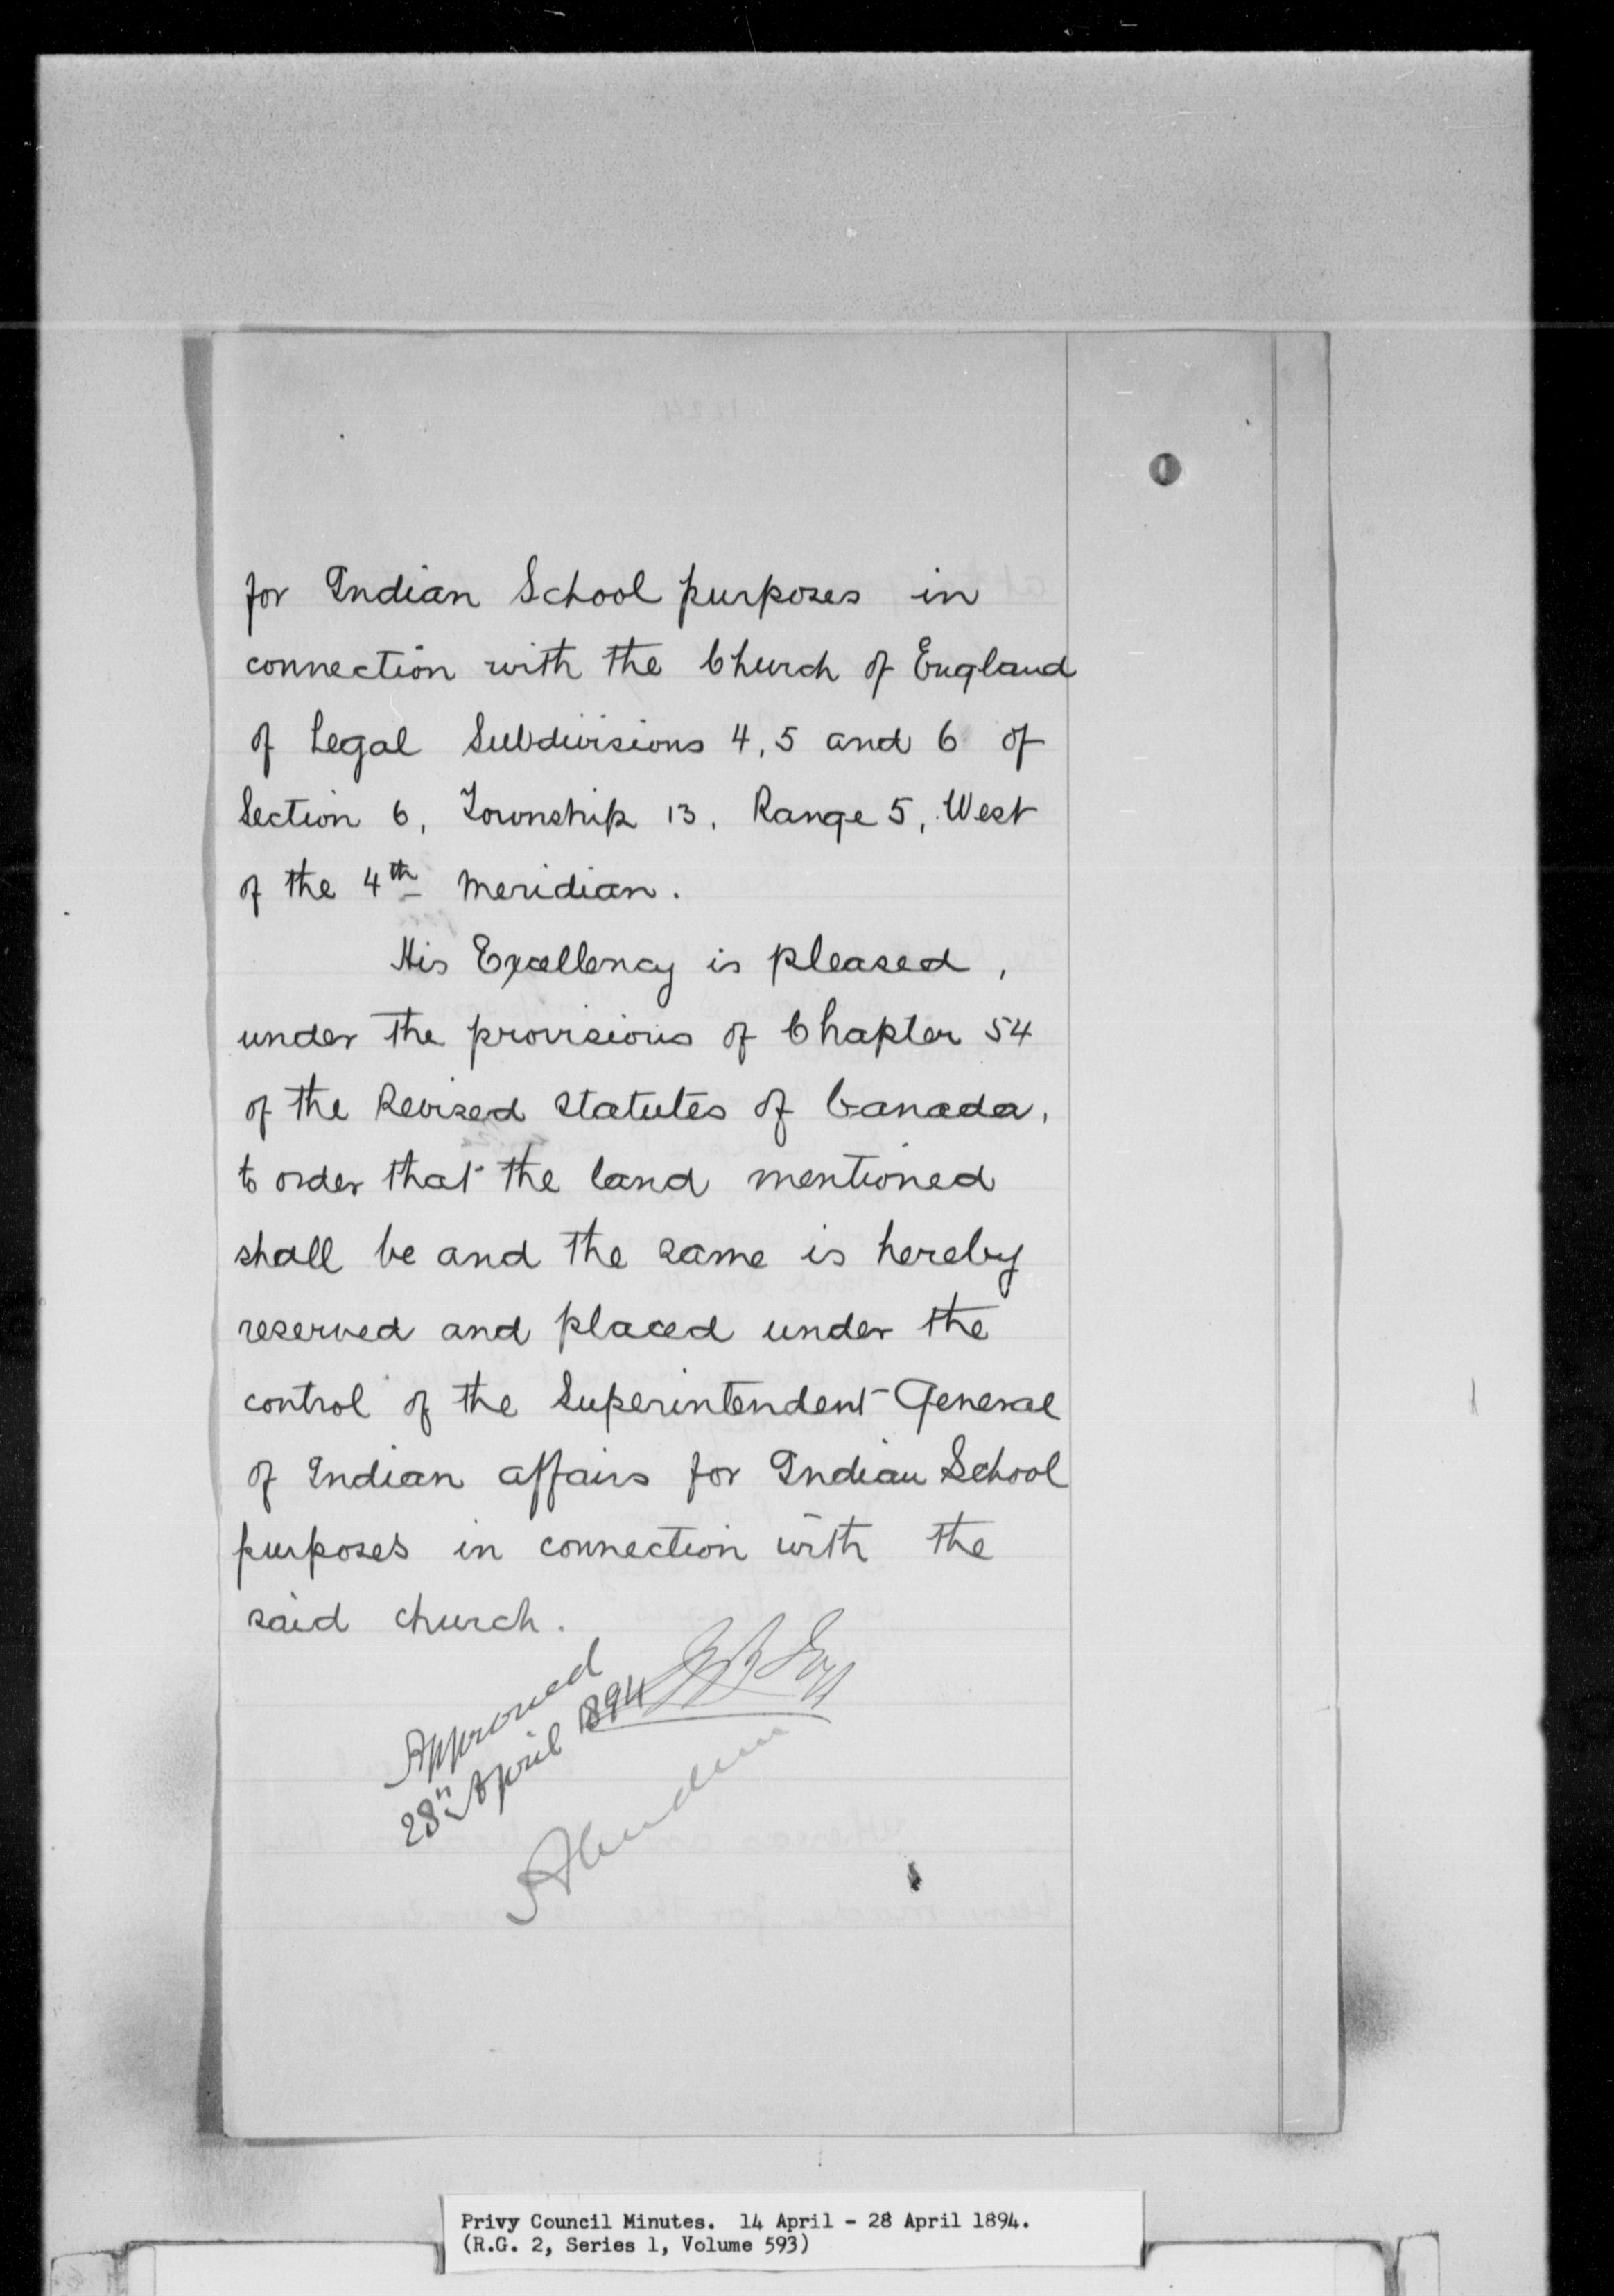 for Indian School purposes in
connection with the Church of England
of Legal Subdivisions 4, 5 and 6 of
Section 6, Township 13, Range 5, West
of the 4th Meridian.
His Excellency is pleased,
under the provisions of Chapter 54
of the Revised Statutes of Canada,
to order that the land mentioned
shall be and the same is hereby
reserved and placed under the
control of the Superintendent General
of Indian affairs for Indian School
purposes in connection with the
said church.
Approved
28th April 1894
Aberdeen
Privy Council Minutes. 14 April - 28 April 1894.
(R.G. 2, Series 1, Volume 593)